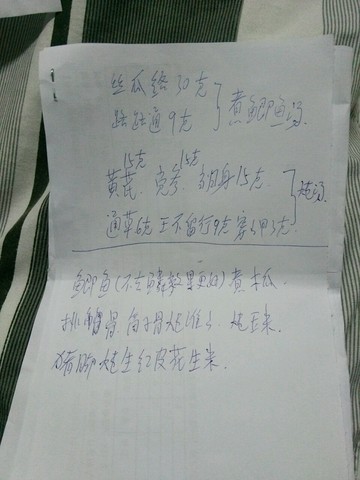 丝瓜络30克
路路通9克 } 煮鲫鱼汤
15克 15克
黄芪、党参、当归身15克
通草6克 王不留行9克 穿山甲3克 } 炖汤
鲫鱼(不去鳞效果更好)煮木瓜.
排骨 筒子骨炖淮山、炖玉米.
猪脚炖生红皮花生米.